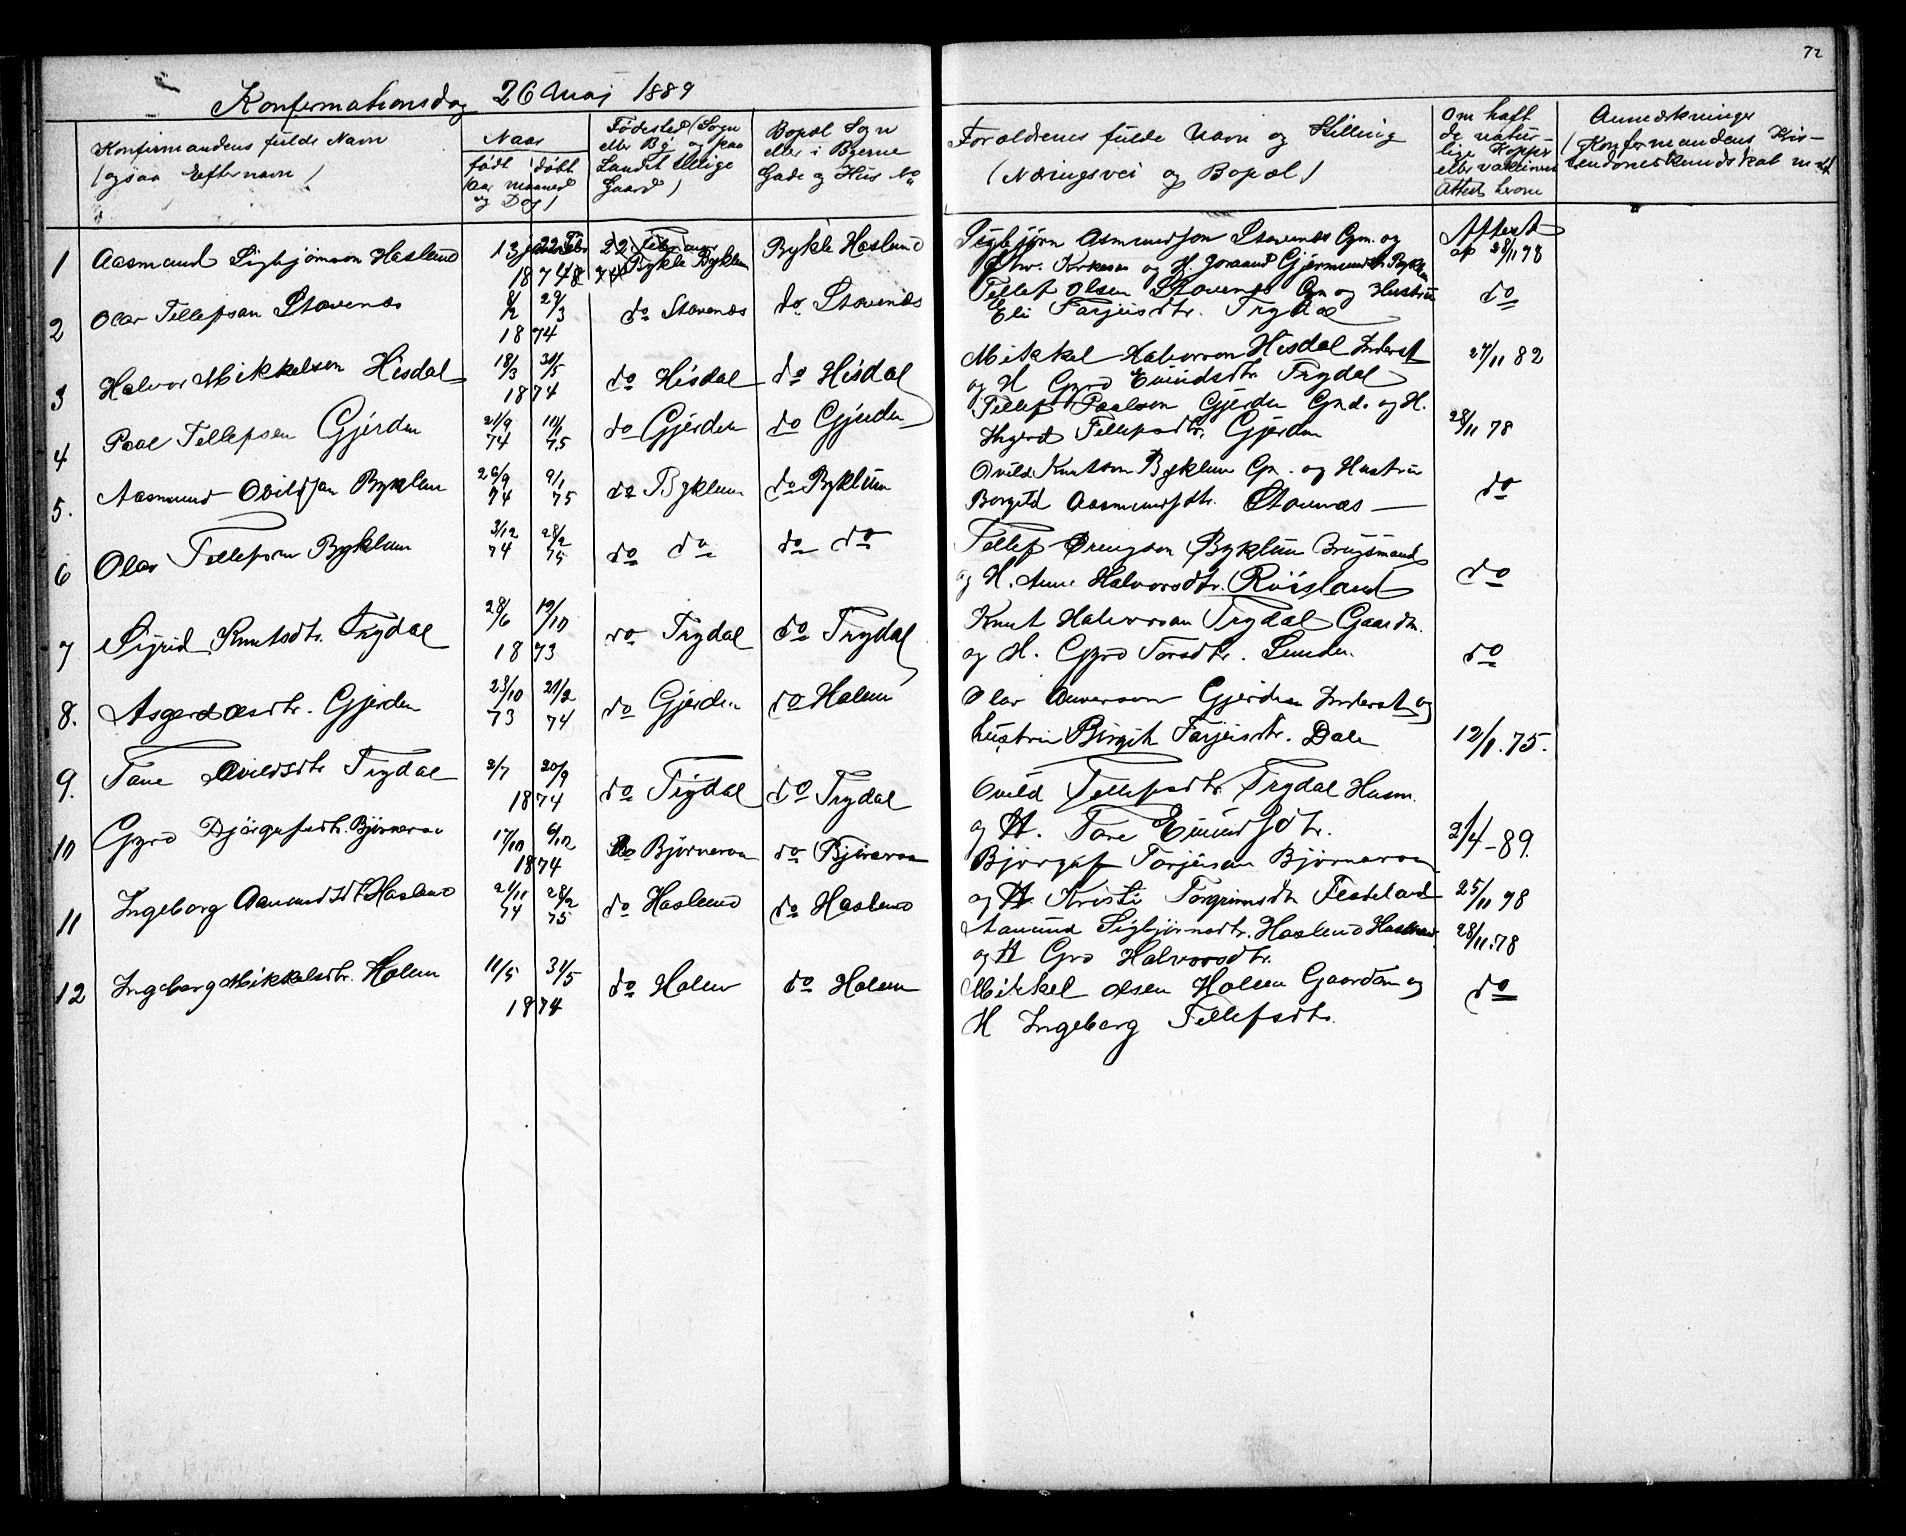 72
Konfirmationsdag 26 Maj 1889
Konfirmandens fulde Navn
(ogsaa Efternavn)
Naar
født døbt
(Aar Maaned
og Dag)
Fødested (Sogn
eller By og paa
Landet tillige
Gaard)
Bopæl Sogn
eller i Byerne
Gade og Hus No
Forældrenes fulde Navn og Stilling
(Næringsvei og Bopæl)
Om haft
de natur-
lige Kopper
eller vaksineret
Attest herom
Anmærkninger
(Konfirmandens Kris-
tendomskundskab m.
1 Aasmund Sigbjørnson Haslund 13 22 Febr
1874 Bykle Byklum Bykle Haslund Sigbjørn Asmundson Stavenæs Gm. og
og H. Joraand Gjermunds Attest
af 28/11 78
2 Olav Tellefsen Stavenæs 8/2 29/3
1874 do Stavenæs do Stavenæs Tellef Olsen Stavenæs Gm og Hustru
Eli Tarjeisdtr. Trydal do
3 Halvor Mikkelsen Hisdal 18/3 31/5
1874 do Hisdal do Hisdal Mikkel Halvorson Hisdal Inderst
og H Gyro Eivindsdtr Trydal 27/11 82
4 Paal Tellefsen Gjerden 21/9 74 11/1 75 do Gjerden do Gjerden Tellef Paalsen Gjerden Gmd. og H.
Tellefsdtr. Gjerden 28/11 78
5. Aasmund Ovildsen Byklum 26/9 74 9/1 75 do Byklum do Byklum Ovild Knutson Byklum Gm. og Hustru
Borgild Aasmundsdtr. Stavenæs do
6 Olav Tellefsen Byklum 3/12 74 28/2 75 do do do do Tellef Drengson Byklum Brugsmand
og H. Anne Halvorsdtr. Røisland do
7 Sigrid Knutsdtr. Trydal 28/6 19/10
1873 do Trydal do Trydal Knut Halvorson Trydal Gaardm.
og H. Gyro Torsdtr. Lunden. do
8. Asgerd Olsdtr. Gjerden 23/10 73 21/2 74 do Gjerden do Holen Olav Gjerden Inderst og
hustru Birgit Tarjeisdtr. Dale 12/1. 75.
9. Tane Ovildsdtr Trydal 2/7 20/9
1874 do Trydal do Trydal Ovild Tellefsdtr Trydal Husm.
og H. Tore Eivindsdtr. 2/4-89.
10 Gyro Bjørgufsdtr. Bjørneraa 17/10 6/12
1874 do Bjørneraa do Bjørneraa Bjørguf Tarjeisen Bjørneraa
og H. Kristi Torgrimsdtr 25/11 98
11 Ingeborg Aamundsdtr Haslund 21/11 74 28/2 75 do Haslund do Haslund Aamund Sigbjørnsdtr. Haslund
og H Gro Halvorsdtr. 28/11.78
12 Ingeborg Mikkelsdtr. Holen 11/5 31/5
1874 do Holen do Holen Mikkel Olsen Holen Gaardm og
H Ingeborg Tellefsdtr. do